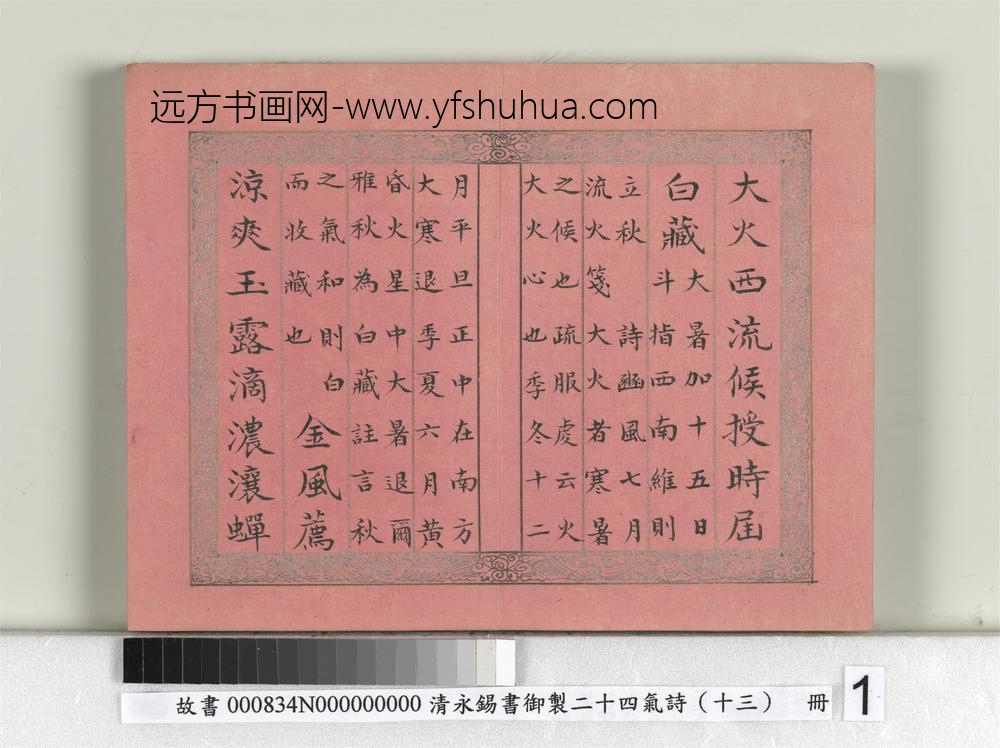 远方书画网-www.yfshuhua.com
大火西流候授時屆
白藏
大暑加十五日
斗指西南維則
立秋 詩豳風七月
流火箋大火者寒暑
之候也疏服虔云火
大火心也季冬十二
月平旦正中在南方
大寒退季夏六月黃
昏火星中大暑退爾
雅秋為白藏註言秋
之氣和則白
而收藏也
金風薦
涼爽玉露滴濃瀼蟬
故書 000834N000000000 清永錫書御製二十四氣詩（十三） 冊 1